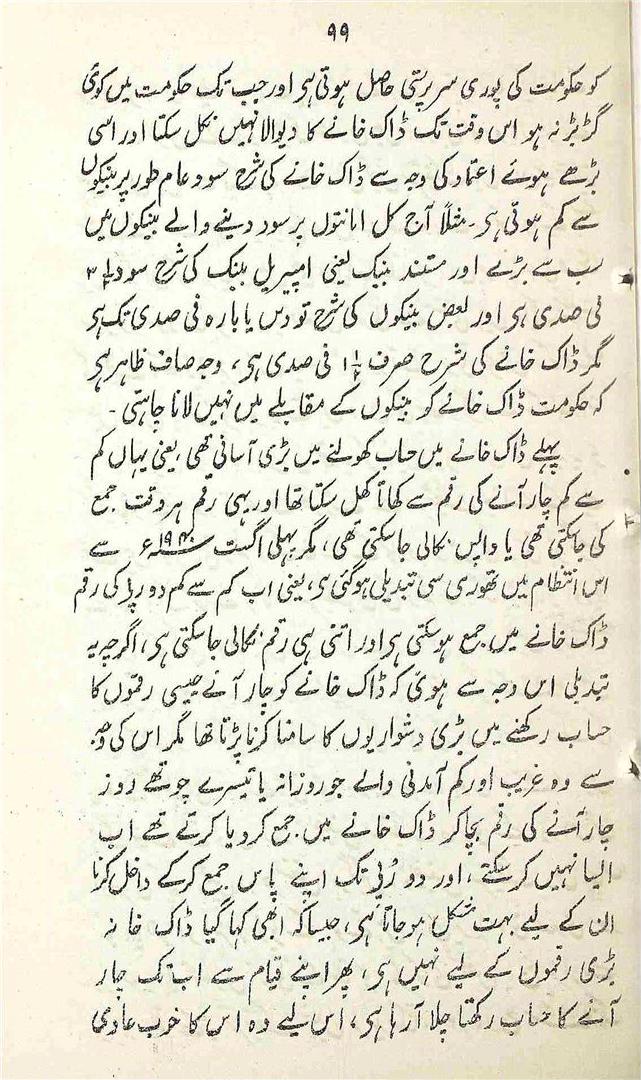 ۹۹
کو حکومت کی پوری سرپرستی حاصل ہوتی ہی اور جب تک حکومت میں کوئی
گڑبڑ نہ ہو اس وقت تک ڈاک خانے کا دیوالا نہیں نکل سکتا اور اسی
بڑھے ہوئے اعتماد کی وجہ سے ڈاک خانے کی شرح سود عام طور پر بینکوں
سے کم ہوتی ہی۔ مثلاً آج کل امانتوں پر سود دینے والے بینکوں میں
سب سے بڑے اور مستند بینک یعنی امپیریل بینک کی شرح سود
فی صدی ہی اور بعض بینکوں کی شرح تو دس یا بارہ فی صدی تک ہی
مگر ڈاک خانے کی شرح صرف ۱½ فی صدی ہی، وجہ صاف ظاہر ہی
کہ حکومت ڈاک خانے کو بینکوں کے مقابلے میں نہیں لانا چاہتی۔
پہلے ڈاک خانے میں حساب کھولنے میں بڑی آسانی تھی، یعنی یہاں کم
سے کم چار آنے کی رقم سے کھاتا کھل سکتا تھا اور یہی رقم ہر وقت جمع
کی جاسکتی تھی یا واپس نکالی جاسکتی تھی، مگر پہلی اگست ۱۹۴۰ء سے
اس انتظام میں تھوری سی تبدیلی ہوگئی ہی، یعنی اب کم سے کم دو رپی کی رقم
ڈاک خانے میں جمع ہوسکتی ہی اور اتنی ہی رقم نکالی جاسکتی ہی، اگرچہ یہ
تبدیلی اس وجہ سے ہوئی کہ ڈاک خانے کو چار آنے جیسی رقموں کا
حساب رکھنے میں بڑی دشواریوں کا سامنا کرنا پڑتا تھا مگر اس کی وجہ
سے وہ غریب اور کم آمدنی والے جو روزانہ یا تیسرے چوتھے روز
چار آنے کی رقم بچا کر ڈاک خانے میں جمع کردیا کرتے تھے اب
ایسا نہیں کرسکتے، اور دو رُپی تک اپنے پاس جمع کرکے داخل کرنا
ان کے لیے بہت مشکل ہوجاتا ہی، جیسا کہ ابھی کہا گیا ڈاک خانہ
بڑی رقموں کے لیے نہیں ہی، پھر اپنے قیام سے اب تک چار
آنے کا حساب رکھتا چلا آرہا ہی، اس لیے وہ اس کا خوب عادی